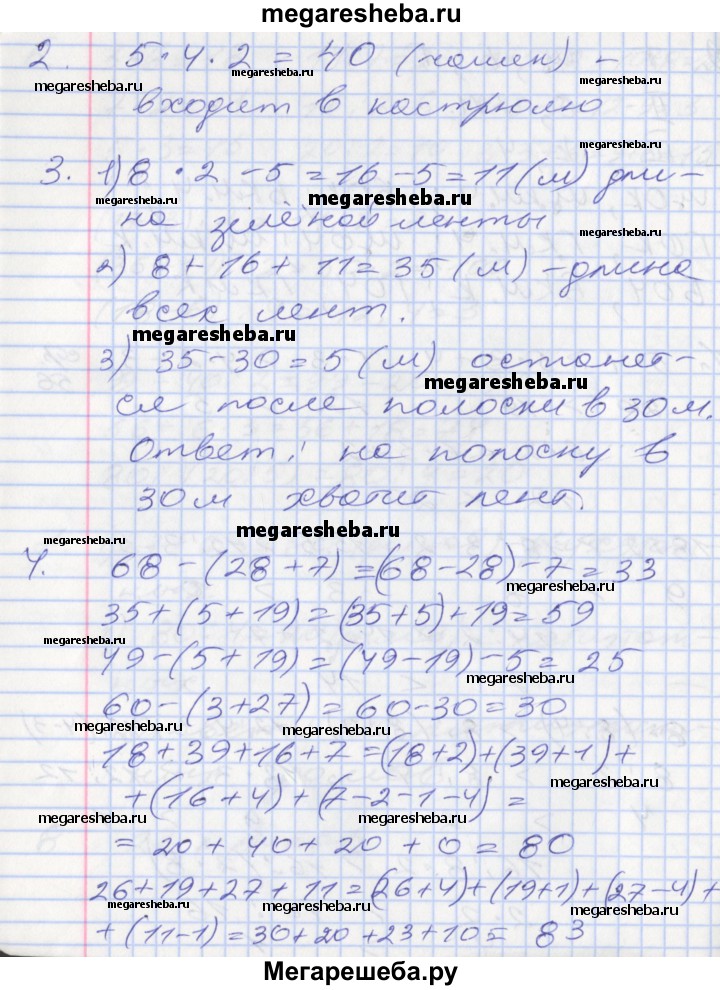 megaresheba.ru
2. 5·4·2 = 40 (чашек) –
megaresheba.ru megaresheba.ru
входит в кастрюлю
megaresheba.ru
3. 1) 8·2 – 5 = 16 – 5 = 11 (м) дли–
megaresheba.ru megaresheba.ru
на зелёной ленты
megaresheba.ru
2) 8 + 16 + 11 = 35 (м) – длина
всех лент.
megaresheba.ru
3) 35 – 30 = 5 (м) останет–
megaresheba.ru
ся после полоски в 30 м.
Ответ: на полоску в
30 м хватит лент.
megaresheba.ru megaresheba.ru
4. 68 – (28 + 7) = (68 – 28) – 7 = 33
megaresheba.ru
35 + (5 + 19) = (35 + 5) + 19 = 59
megaresheba.ru
49 – (5 + 19) = (49 – 19) – 5 = 25
megaresheba.ru
60 – (3 + 27) = 60 – 30 = 30
megaresheba.ru megaresheba.ru
18 + 39 + 16 + 7 = (18 + 2) + (39 + 1) +
megaresheba.ru
+ (16 + 4) + (7 – 2 – 1 – 4) =
megaresheba.ru megaresheba.ru
= 20 + 40 + 20 + 0 = 80
26 + 19 + 27 + 11 = (26 + 4) + (19 + 1) + (27 – 4) +
megaresheba.ru megaresheba.ru megaresheba.ru
+ (11 – 1) = 30 + 20 + 23 + 10 = 83
Мегарешеба.ру